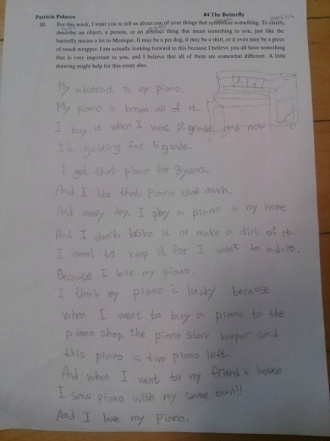 Patricia Polacco #4 The Butterfly
III For this week, I want you to tell us about one of your things that symbolize something. To clarify,
describe an object, a person, or an abstract thing that mean something to you, just like the
butterfly means a lot to Monique. It may be a pet dog, it may be a shirt, or it even may be a piece
of snack wrapper. I am actually looking forward to this because I believe you all have something
that is very important to you, and I believe that all of them are somewhat different. A little
drawing might help for this essay also.
My substract is my piano.
My piano is brown all of it.
I buy it when I was 2 grade and now
I'm going for 5 grade.
I got that piano for 3 years.
And I like that piano that much.
And every day I play a piano in my home
And I don't brake it or make a dirt of it.
I want to keep it for I went to adult.
Because I love my piano.
I think my piano is lucky because
when I went to buy a piano to the
piano shop the piano store keeper said
this piano is two piano left.
And when I went to my friend's house
I saw piano with my same own!!
And I love my piano.